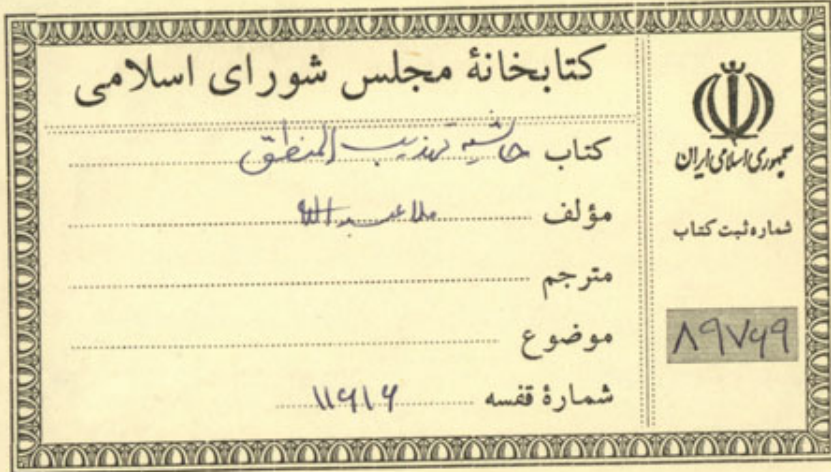 کتابخانهٔ مجلس شورای اسلامی
کتاب حاشیه تهذیب المنطق
مؤلف ملا عبدالله
مترجم
موضوع
شمارهٔ قفسه ۱۱۶۱۶
جمهوری اسلامی ایران
شماره ثبت کتاب
۸۹۷۶۹